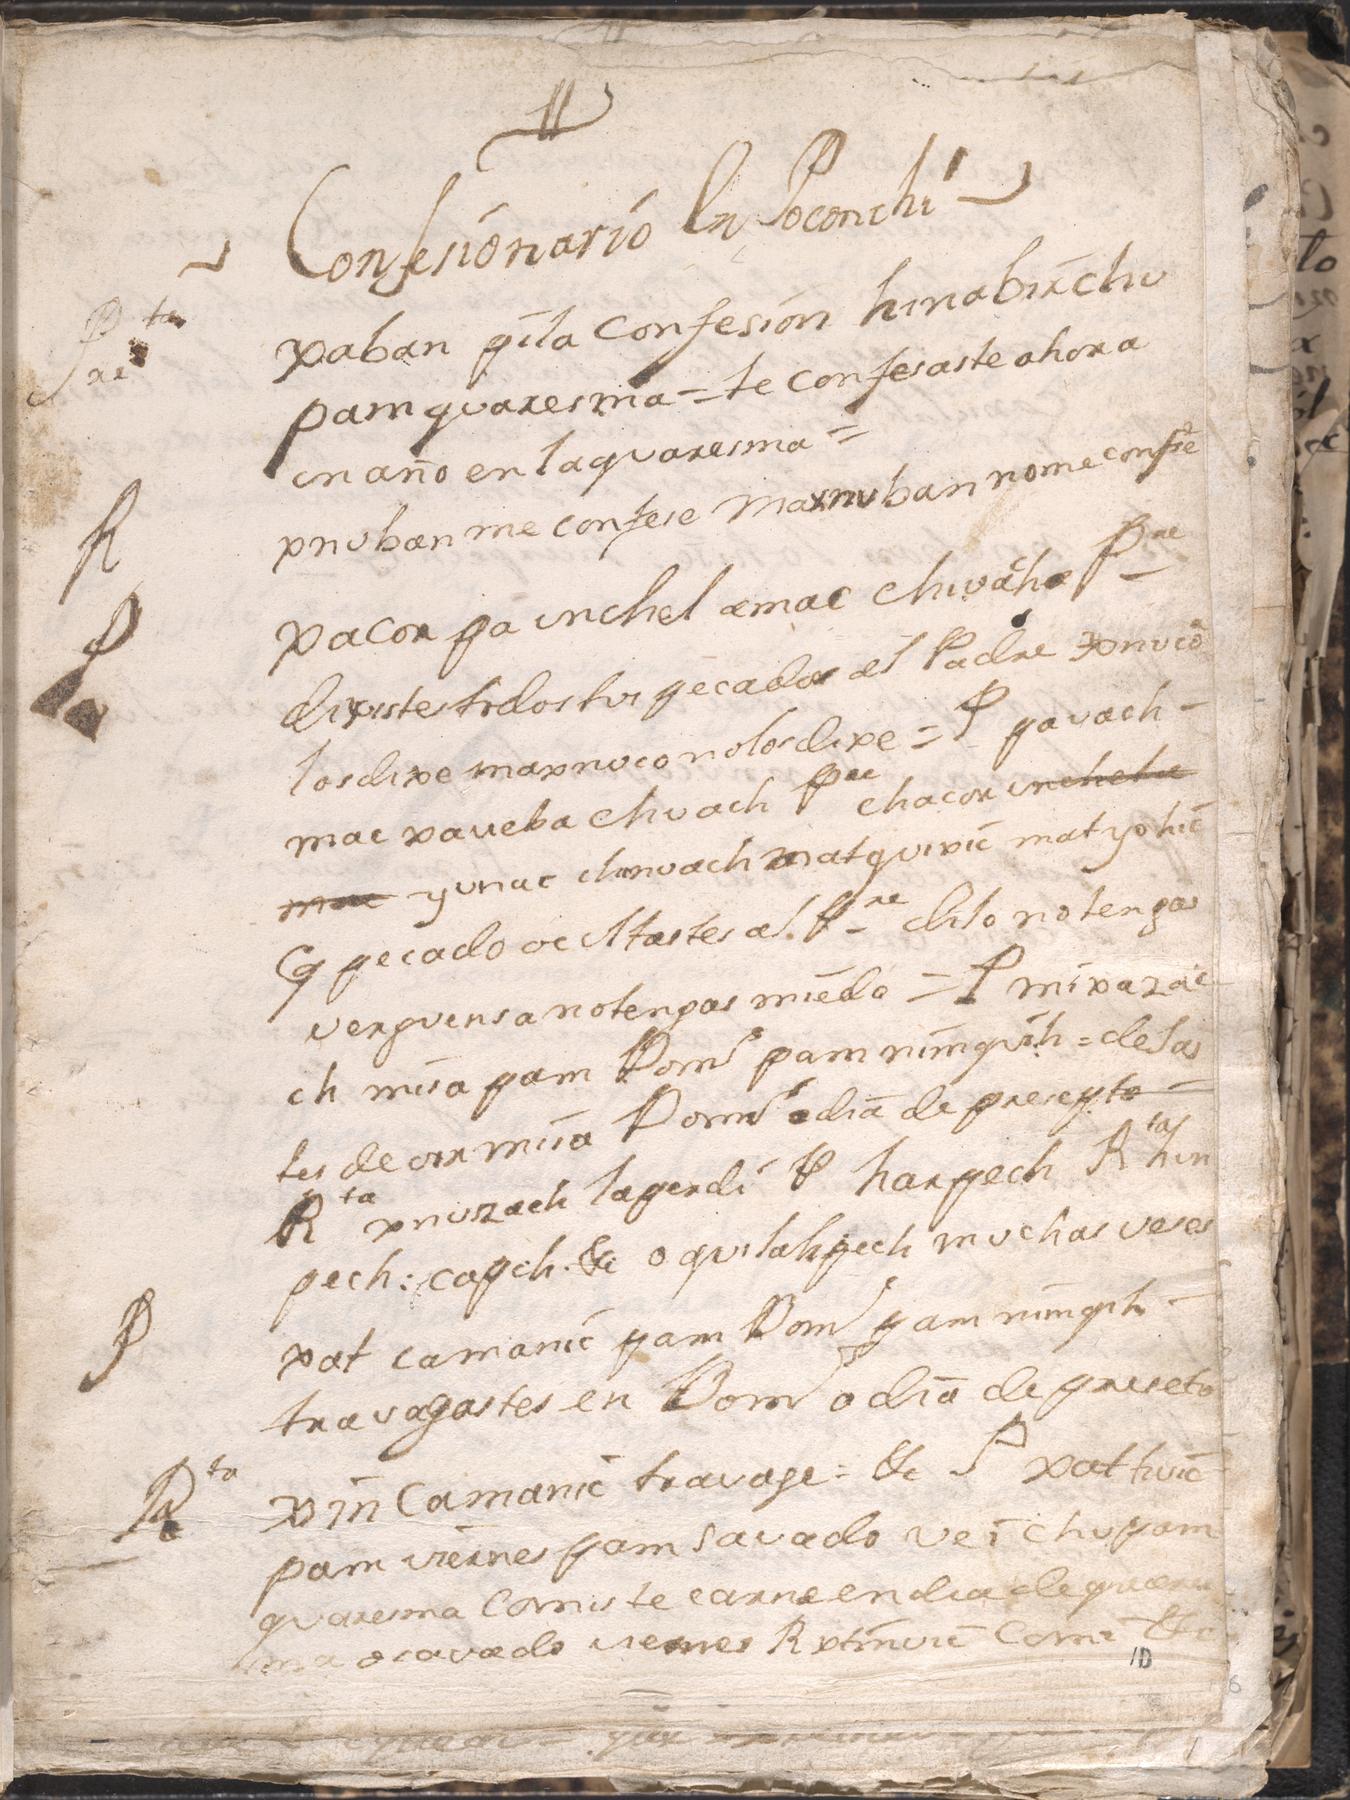 Confesionario En Poconchi
Pre ta
xaban pila Confesion hinabixchu
pam quaresma = te confesaste ahora
un año en la quaresma =
R
xnuban me confese Maxnuban no me confese
P
xacor pa unchel amac chivàha Pre
dixistes todos tus pecados al Padre xnuco
los dixe maxnuco no los dixe = P pavach -
mac xaveba chuach Pre chacor unchelu
mac yunac chinuach matquixic matyohic
Q pecado ocultastes al Pre dilo no tengas
verguensa no tengas miedo = P mixazac
ch misa pam Domo pam nimquih = dejas
tes de oir misa Domo o dia de presepto -
Rta xnuzach la perdi P harpech Rta hin
pech: capch. &c o quilahpech muchas veses
P
xat camanic pam Domo pam nimqih -
travagastes en Domo o dia de preseto
Rta
xin Camanic travage = &c P xat tivic
pam viernes pam Savado vei chupam
quaresma Comiste carne en dia de quares
ma o savado viernes R xtinvic Comi &c
10
6